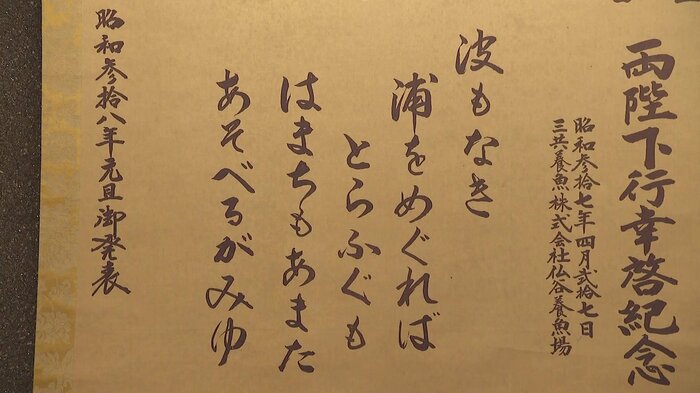 両陛下行幸啓紀念
昭和参拾七年四月弐拾七日
三共養魚株式会社仏谷養魚場
波もなき
浦をめぐれば
とらふぐも
はまちもあまた
あそべるがみゆ
昭和参拾八年元旦御発表